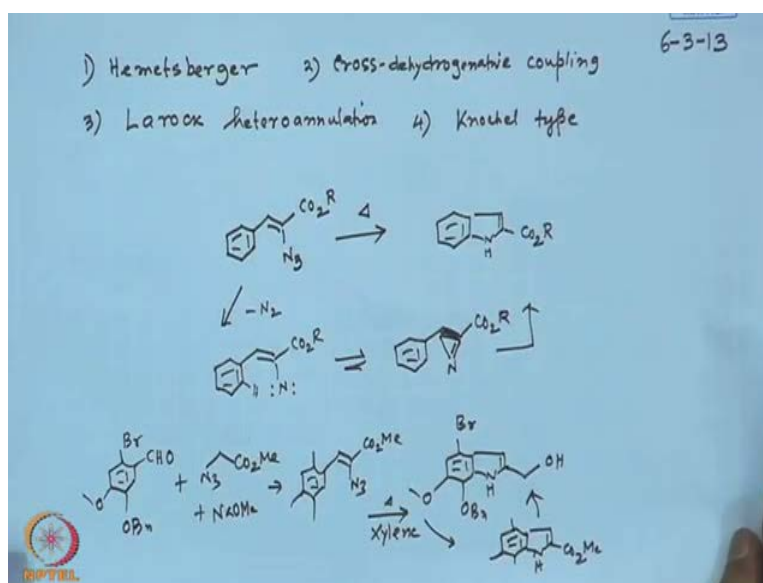 6-3-13
1) Hemetsberger 2) Cross-dehydrogenative coupling
3) Larock heteroannulation 4) Knochel type
CO2R
Δ
N3
N
H
CO2R
- N2
CO2R
H :N:
⇌
CO2R
N
Br
CHO
O
OBn
+
N3 CO2Me
+ NaOMe
CO2Me
N3
Δ
Xylene
Br
N
H
OH
O
OBn
N
H
CO2Me
NPTEL